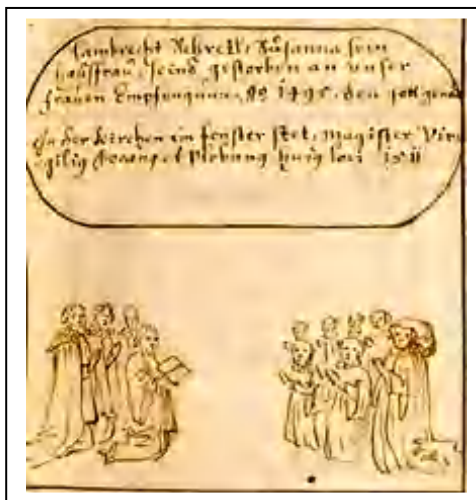 lambrecht Schrell, Susanna sein
haussfrau, seind gestorben an unser
frauen Empfengnuß, Aō 1495, den gott genad
In der kirchen im fenster stet, magister Vir
gilig plebanus huius loci 1511